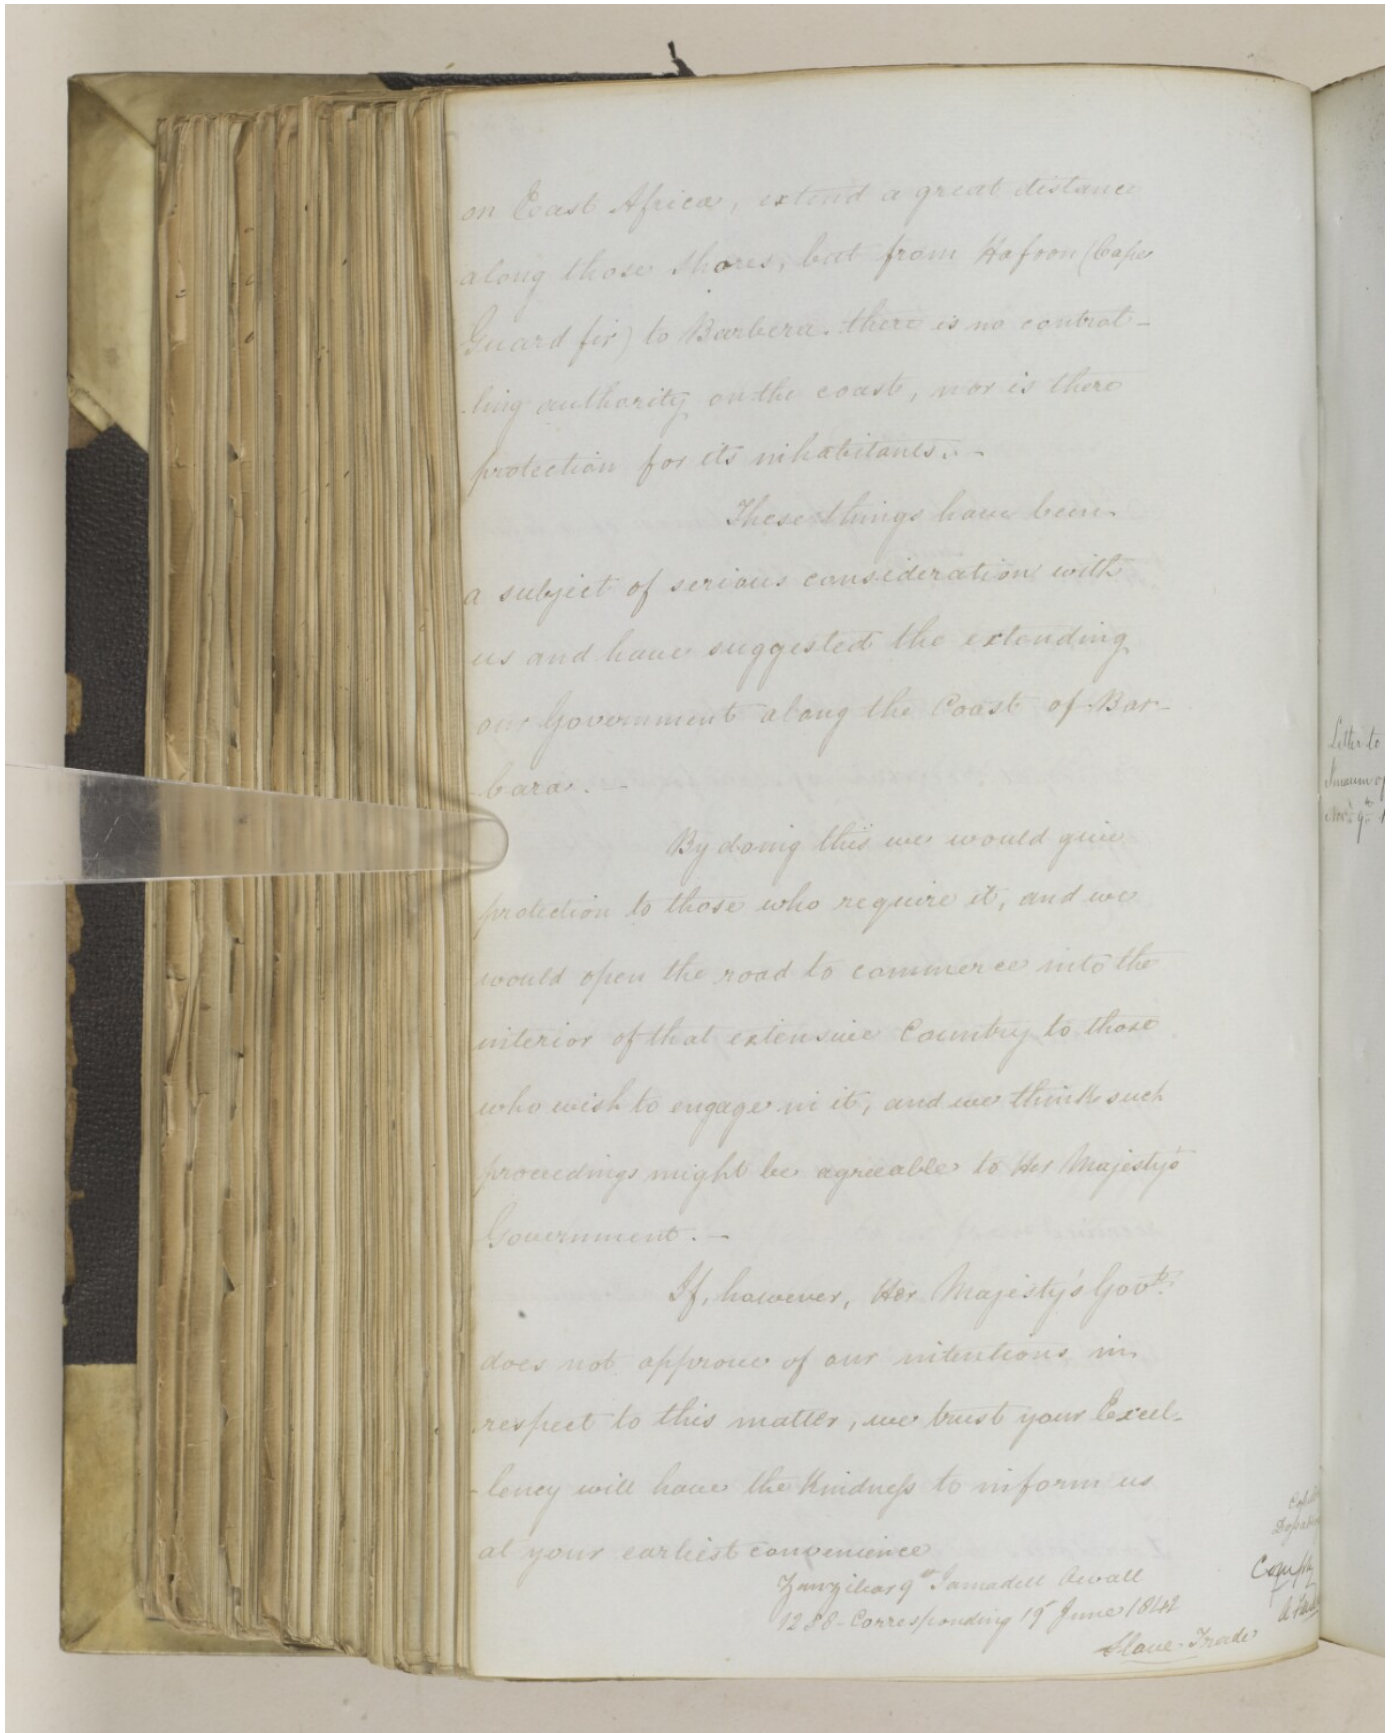 on East Africa, extend a great distance
along those shores, but from Hafoon (Cape
Guard fir) to Barbera. there is no control-
-ling authority on the coast, nor is there
protection for its inhabitants. -
These things have been
a subject of serious consideration with
us and have suggested the extending
our Government along the Coast of Bar-
-bara. -
By doing this we would give
protection to those who require it, and we
would open the road to commerce into the
interior of that extensive Country to those
who wish to engage in it, and we think such
proceedings might be agreeable to Her Majesty's
Government. -
If, however, Her Majesty's Govt.
does not approve of our intentions in
respect to this matter, we trust your Excel-
-lency will have the Kindness to inform us
at your earliest convenience
Zanzibar 9th Jamadell Awall
1288 - Corresponding 19 June 1842
Slave-Trade
Letter to
Imaum of
Novr. 9th